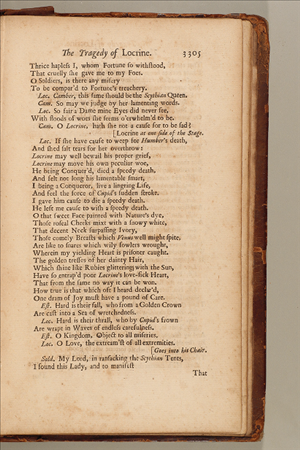 The Tragedy of Locrine. 3305
Thrice hapless I, whom Fortune so withstood,
That cruelly she gave me to my Foes.
O Soldiers, is there any misery
To be compar'd to Fortune's treachery.
Loc. Camber, this same should be the Scythian Queen.
Cam. So may we judge by her lamenting words.
Loc. So fair a Dame mine Eyes did never see,
With floods of woes she seems o'erwhelm'd to be.
Cam. O Locrine, hath she not a cause for to be sad?
[Locrine at one side of the Stage.
Loc. If she have cause to weep for Humber's death,
And shed salt tears for her overthrow:
Locrine may well bewail his proper grief,
Locrine may move his own peculiar woe,
He being Conquer'd, died a speedy death,
And felt not long his lamentable smart,
I being a Conqueror, live a lingring Life,
And feel the force of Cupid's sudden stroke.
I gave him cause to die a speedy death,
He left me cause to wish a speedy death.
O that sweet Face painted with Nature's dye,
Those roseal Cheeks mixt with a snowy white,
That decent Neck surpassing Ivory,
Those comely Breasts which Venus well might spite,
Are like to snares which wily fowlers wrought,
Wherein my yielding Heart is prisoner caught.
The golden tresses of her dainty Hair,
Which shine like Rubies glittering with the Sun,
Have so entrap'd poor Locrine's love-sick Heart,
That from the same no way it can be won.
How true is that which oft I heard declar'd,
One dram of Joy must have a pound of Care.
Est. Hard is their fall, who from a Golden Crown
Are cast into a Sea of wretchedness.
Loc. Hard is their thrall, who by Cupid's frown
Are wrapt in Waves of endless carefulness.
Est. O Kingdom, Object to all miseries.
Loc. O Love, the extream'st of all extremities.
[Goes into his Chair.
Sold. My Lord, in ransacking the Scythian Tents,
I found this Lady, and to manifest
That